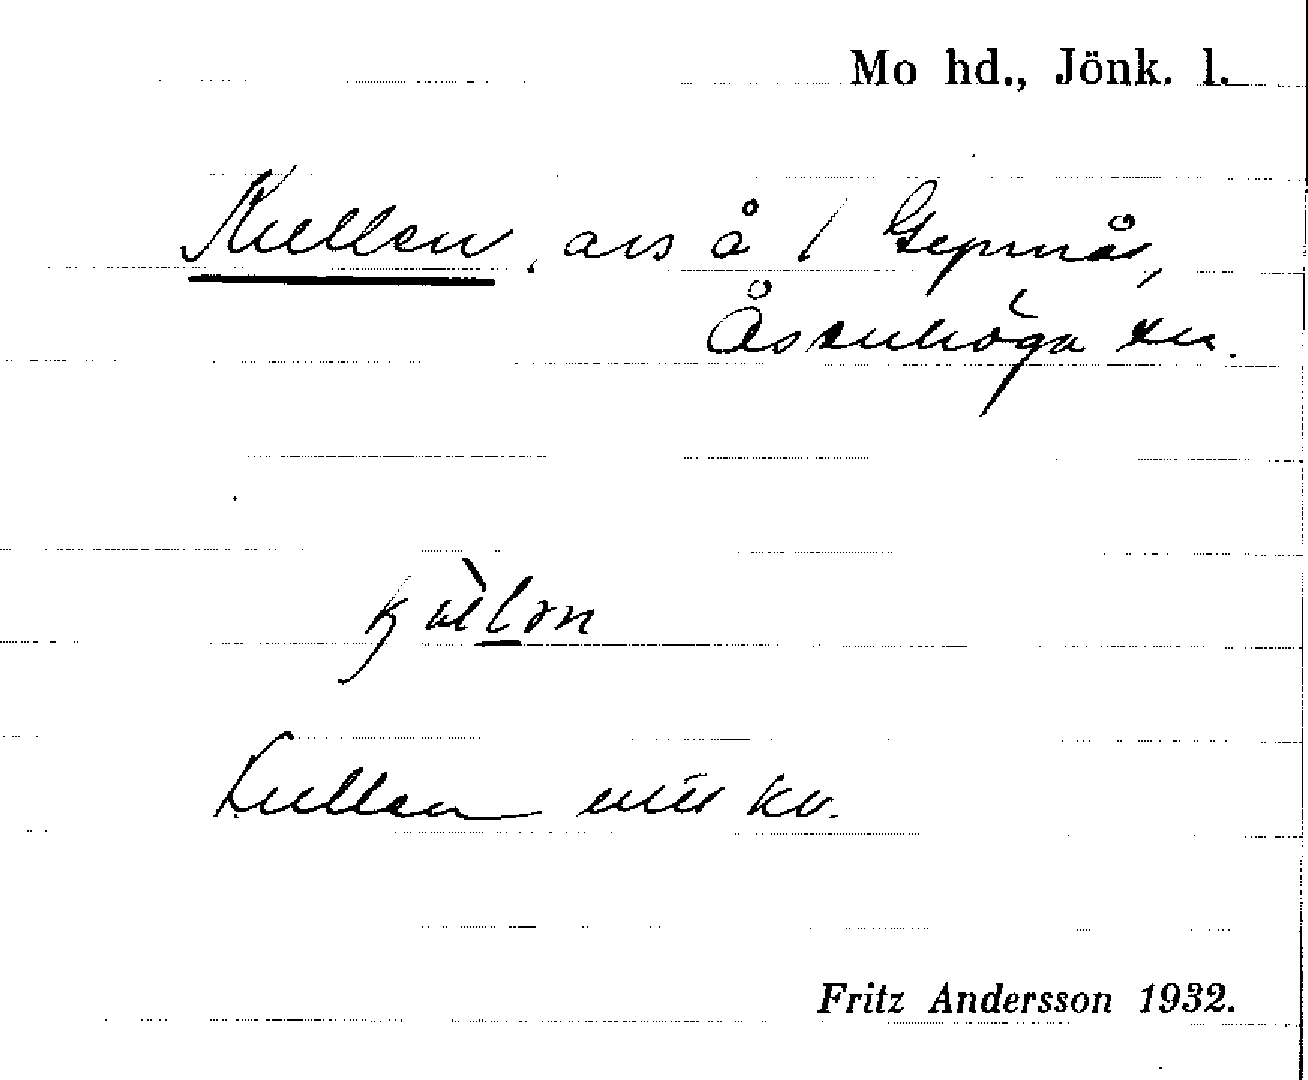 Mo hd., Jönk. l.
Kullen, avs å 1 Gepmå,
Åsenhöga sn.
Kullen kv.
Fritz Andersson 1932.